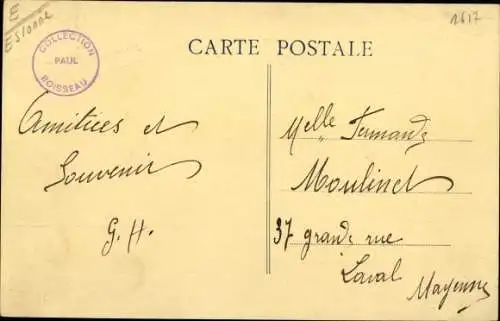 E
Essonne
COLLECTION
PAUL
BOISSEAU
1617
CARTE POSTALE
Amitiées et
Souvenir
G. H.
Melle Fernande
Moulinet
37 grande rue
Laval
Mayenne